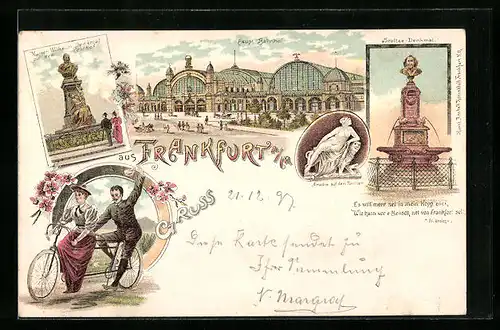 Kaiser Wilhelm Denkmal
Haupt-Bahnhof
Stoltze-Denkmal.
GRUSS
aus FRANKFURT a/M
Ariadne auf dem Panther
Es will merr net in mein Kopp enei,
Wie kann nor e Mensch net von Frankfort sei.
Fr. Stoltze.
21.12.97
Diese Karte sendet zu
Ihrer Sammlung
N. Margraf